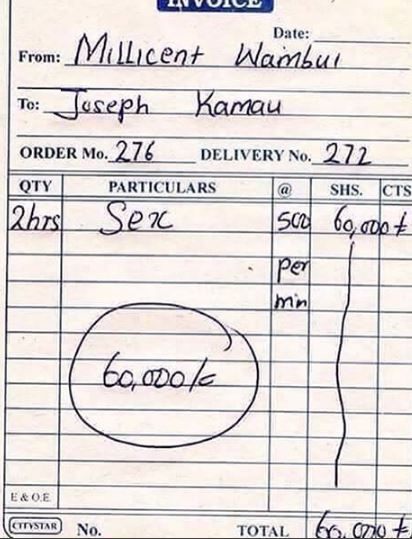 INVOICE
Date:
From: Millicent Wambui
To: Joseph Kamau
ORDER Mo. 276 DELIVERY No. 272
QTY PARTICULARS @ SHS. CTS
2hrs Sex 500 60,000/=
per
min
60,000/=
E & O.E
CITYSTAR No. TOTAL 60,000/=